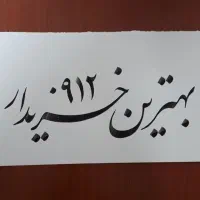 بهترین خریدار ۹۱۲